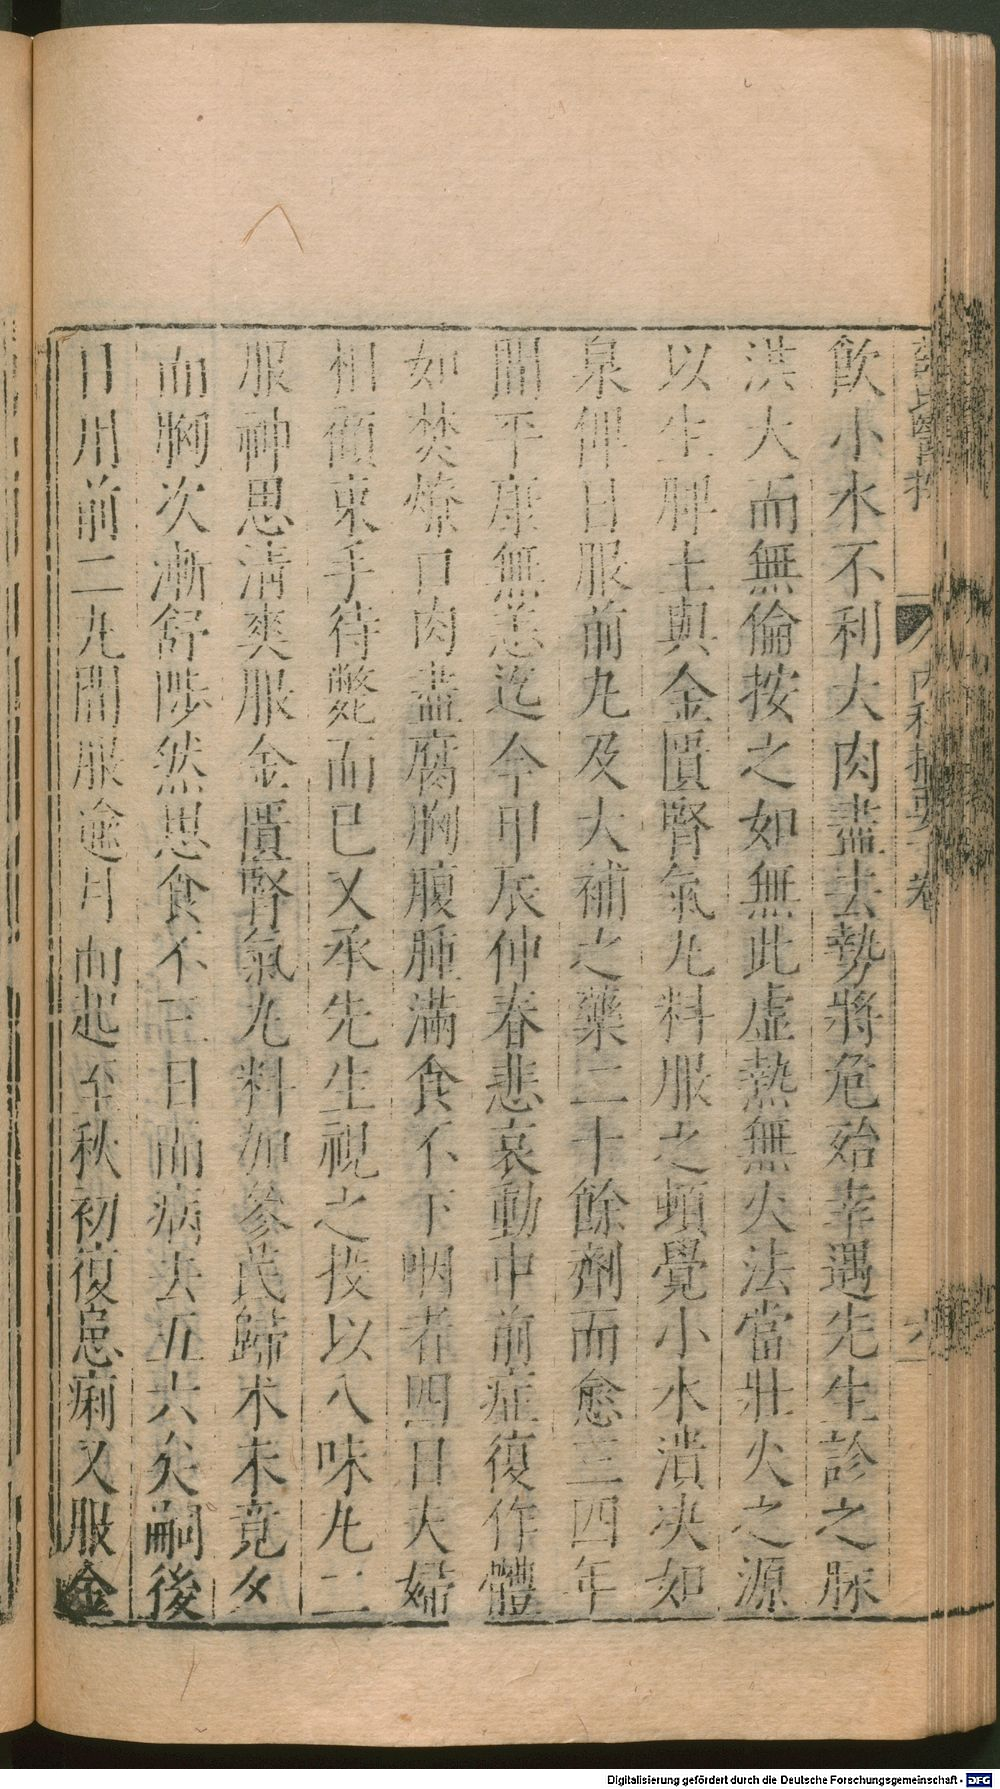 飲小水不利大肉盡去勢將危殆幸遇先生診之脉
洪大而無倫按之如無此虛熱無火法當壯火之源
以生脾土與金匱腎氣九料服之頓覺小水潰决如
泉俾日服前九及大補之藥二十餘劑而愈三四年
間平康無恙迄今甲辰仲春悲哀動中前症復作體
如焚燎口肉盡腐胸腹腫滿食不下咽者四日夫婦
相顧束手待斃而已又承先生視之投以八味九二
服神思清爽服金匱腎氣九料加參芪歸术未竟夕
而胸次漸舒陟然思食不三日而病去五六矣嗣後
日用前二九間服逾月而起至秋初復患痢又服金
內科摘要
Digitalisierung gefördert durch die Deutsche Forschungsgemeinschaft - DFG